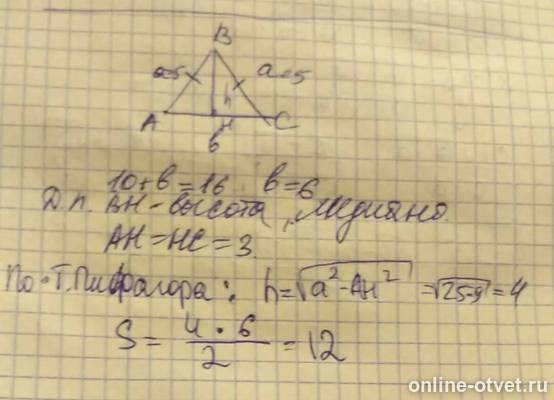 B
a=5 a=5
h
A H C
b
10+b=16 b=6
Д.п. BH - высота, медиана.
AH=HC=3.
По Т.Пифагора: h=√a²-AH² =√25-9=4
S= 4·6/2 =12
online-otvet.ru